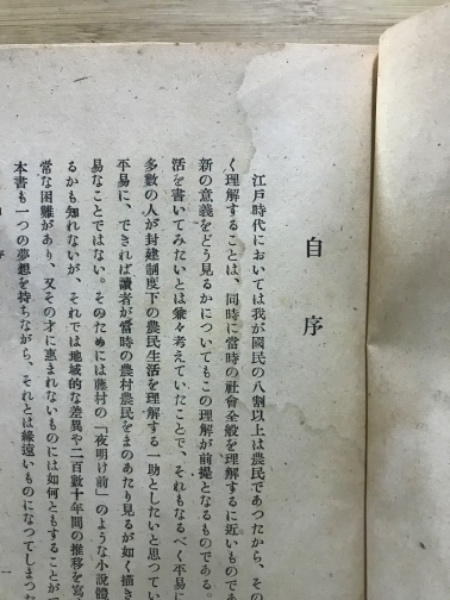 自序
江戸時代においては我が國民の八割以上は農民であつたから、その
く理解することは、同時に當時の社會全般を理解するに近いものであ
新の意義をどう見るかについてもこの理解が前提となるものである。
活を書いてみたいとは兼々考えていたことで、それもなるべく平易に
多數の人が封建制度下の農民生活を理解する一助としたいと思つてい
平易に、できれば讀者が當時の農村農民をまのあたり見るが如く描き
易なことではない。そのためには藤村の「夜明け前」のような小說體
るかも知れないが、それでは地域的な差異や二百數十年間の推移を寫
常な困難があり、又その才に惠まれないものには如何ともすることが
本書も一つの夢想を持ちながら、それとは緣遠いものになつてしまつた
一